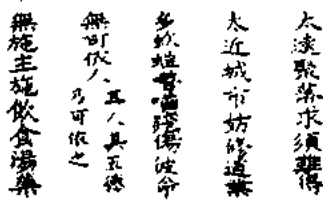 太遠聚落求須難得
太近城市妨修道業
多蚊傷彼命
無可依人 其人具五德
乃可依之
無施主施飲食湯藥